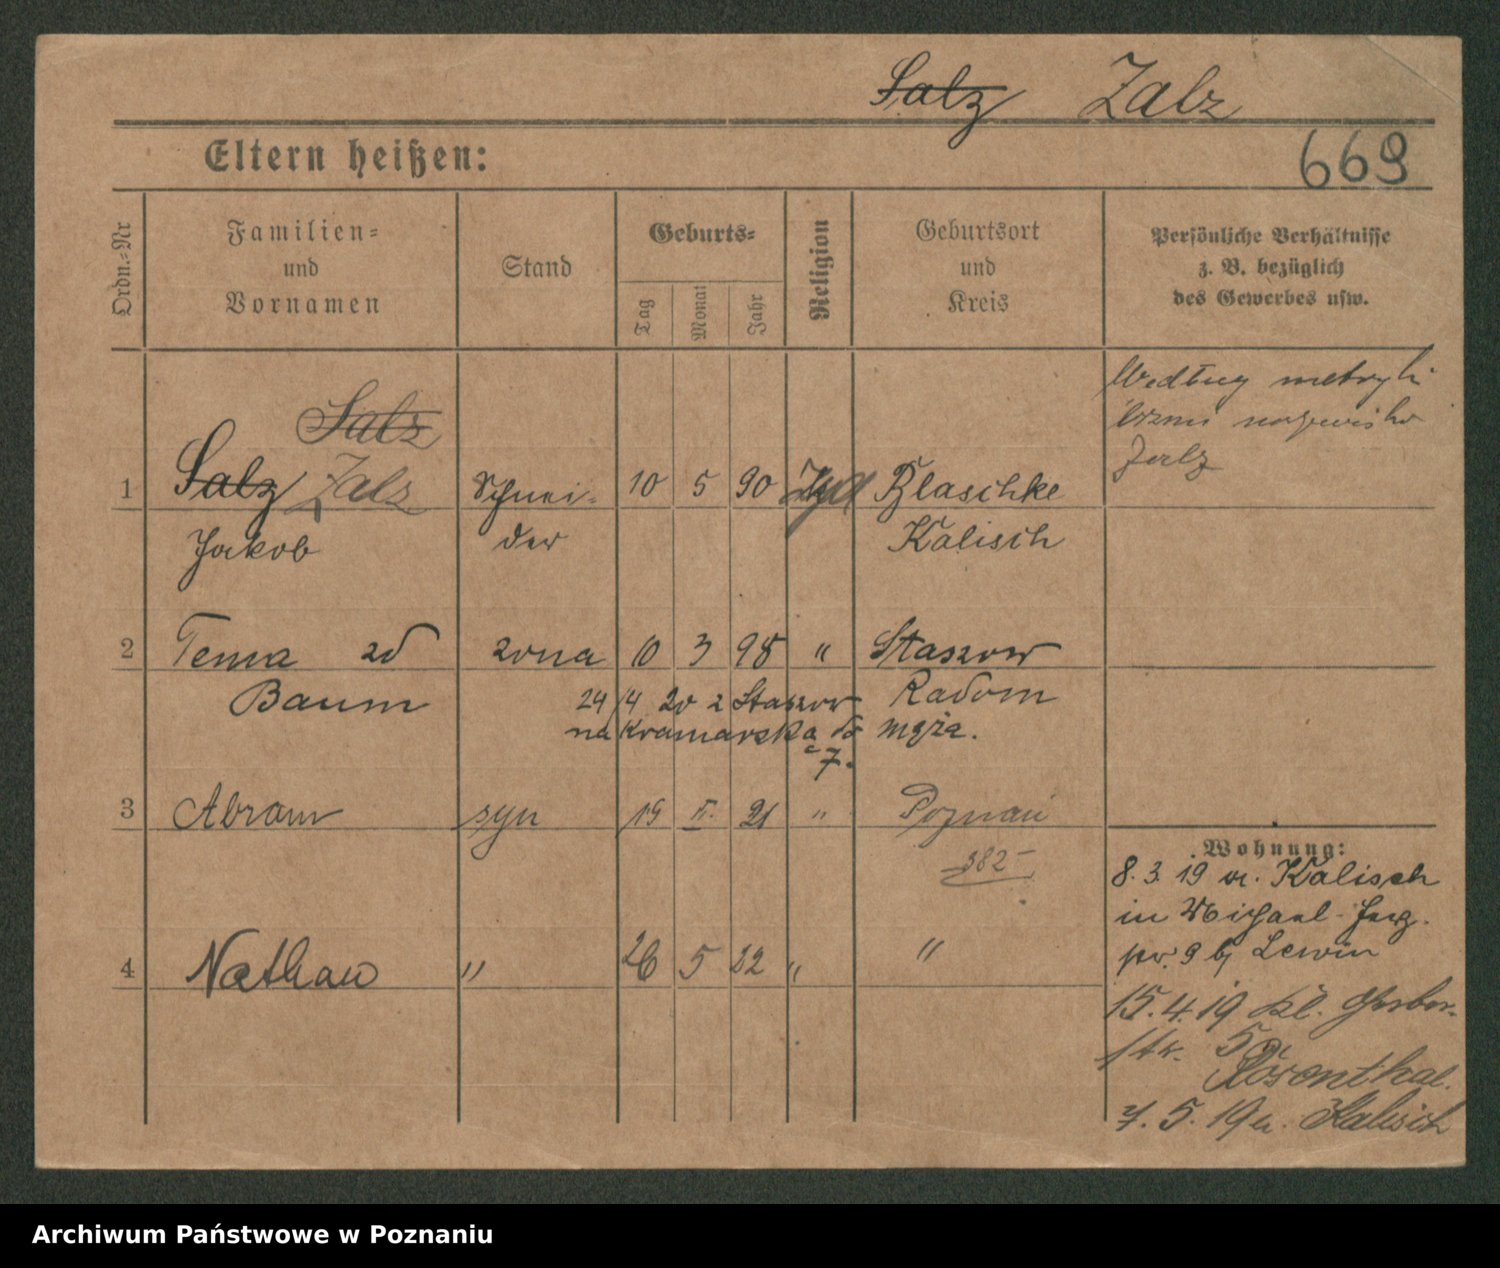 Salz Zalz
Eltern heißen:
669
Ordn.-Nr
Familien-
und
Vornamen
Stand
Geburts-
Tag
Monat
Jahr
Religion
Geburtsort
und
Kreis
Persönliche Verhältnisse
z. B. bezüglich
des Gewerbes usw.
Według metryki
brzmi nazwisko
Zalz
Salz
1 Salz Zalz Schnei- 10 5 90 Blaschke
Jakob der Kalisch
2 Tema zd żona 10 3 98 " Staszow
Baum 24/4 20 z Staszow Radom
na Kramarska do męża.
7.
3 Abram syn 19 II. 21 " Poznań
382-
4 Nathan " 26 5 22 " "
Wohnung:
8. 3. 19 v. Kalisch
in Michael
9 b/ Lewin
15. 4. 19 Kl. Gerber-
str. 5
Rosenthal.
7. 5. 19 n. Kalisch
Archiwum Państwowe w Poznaniu